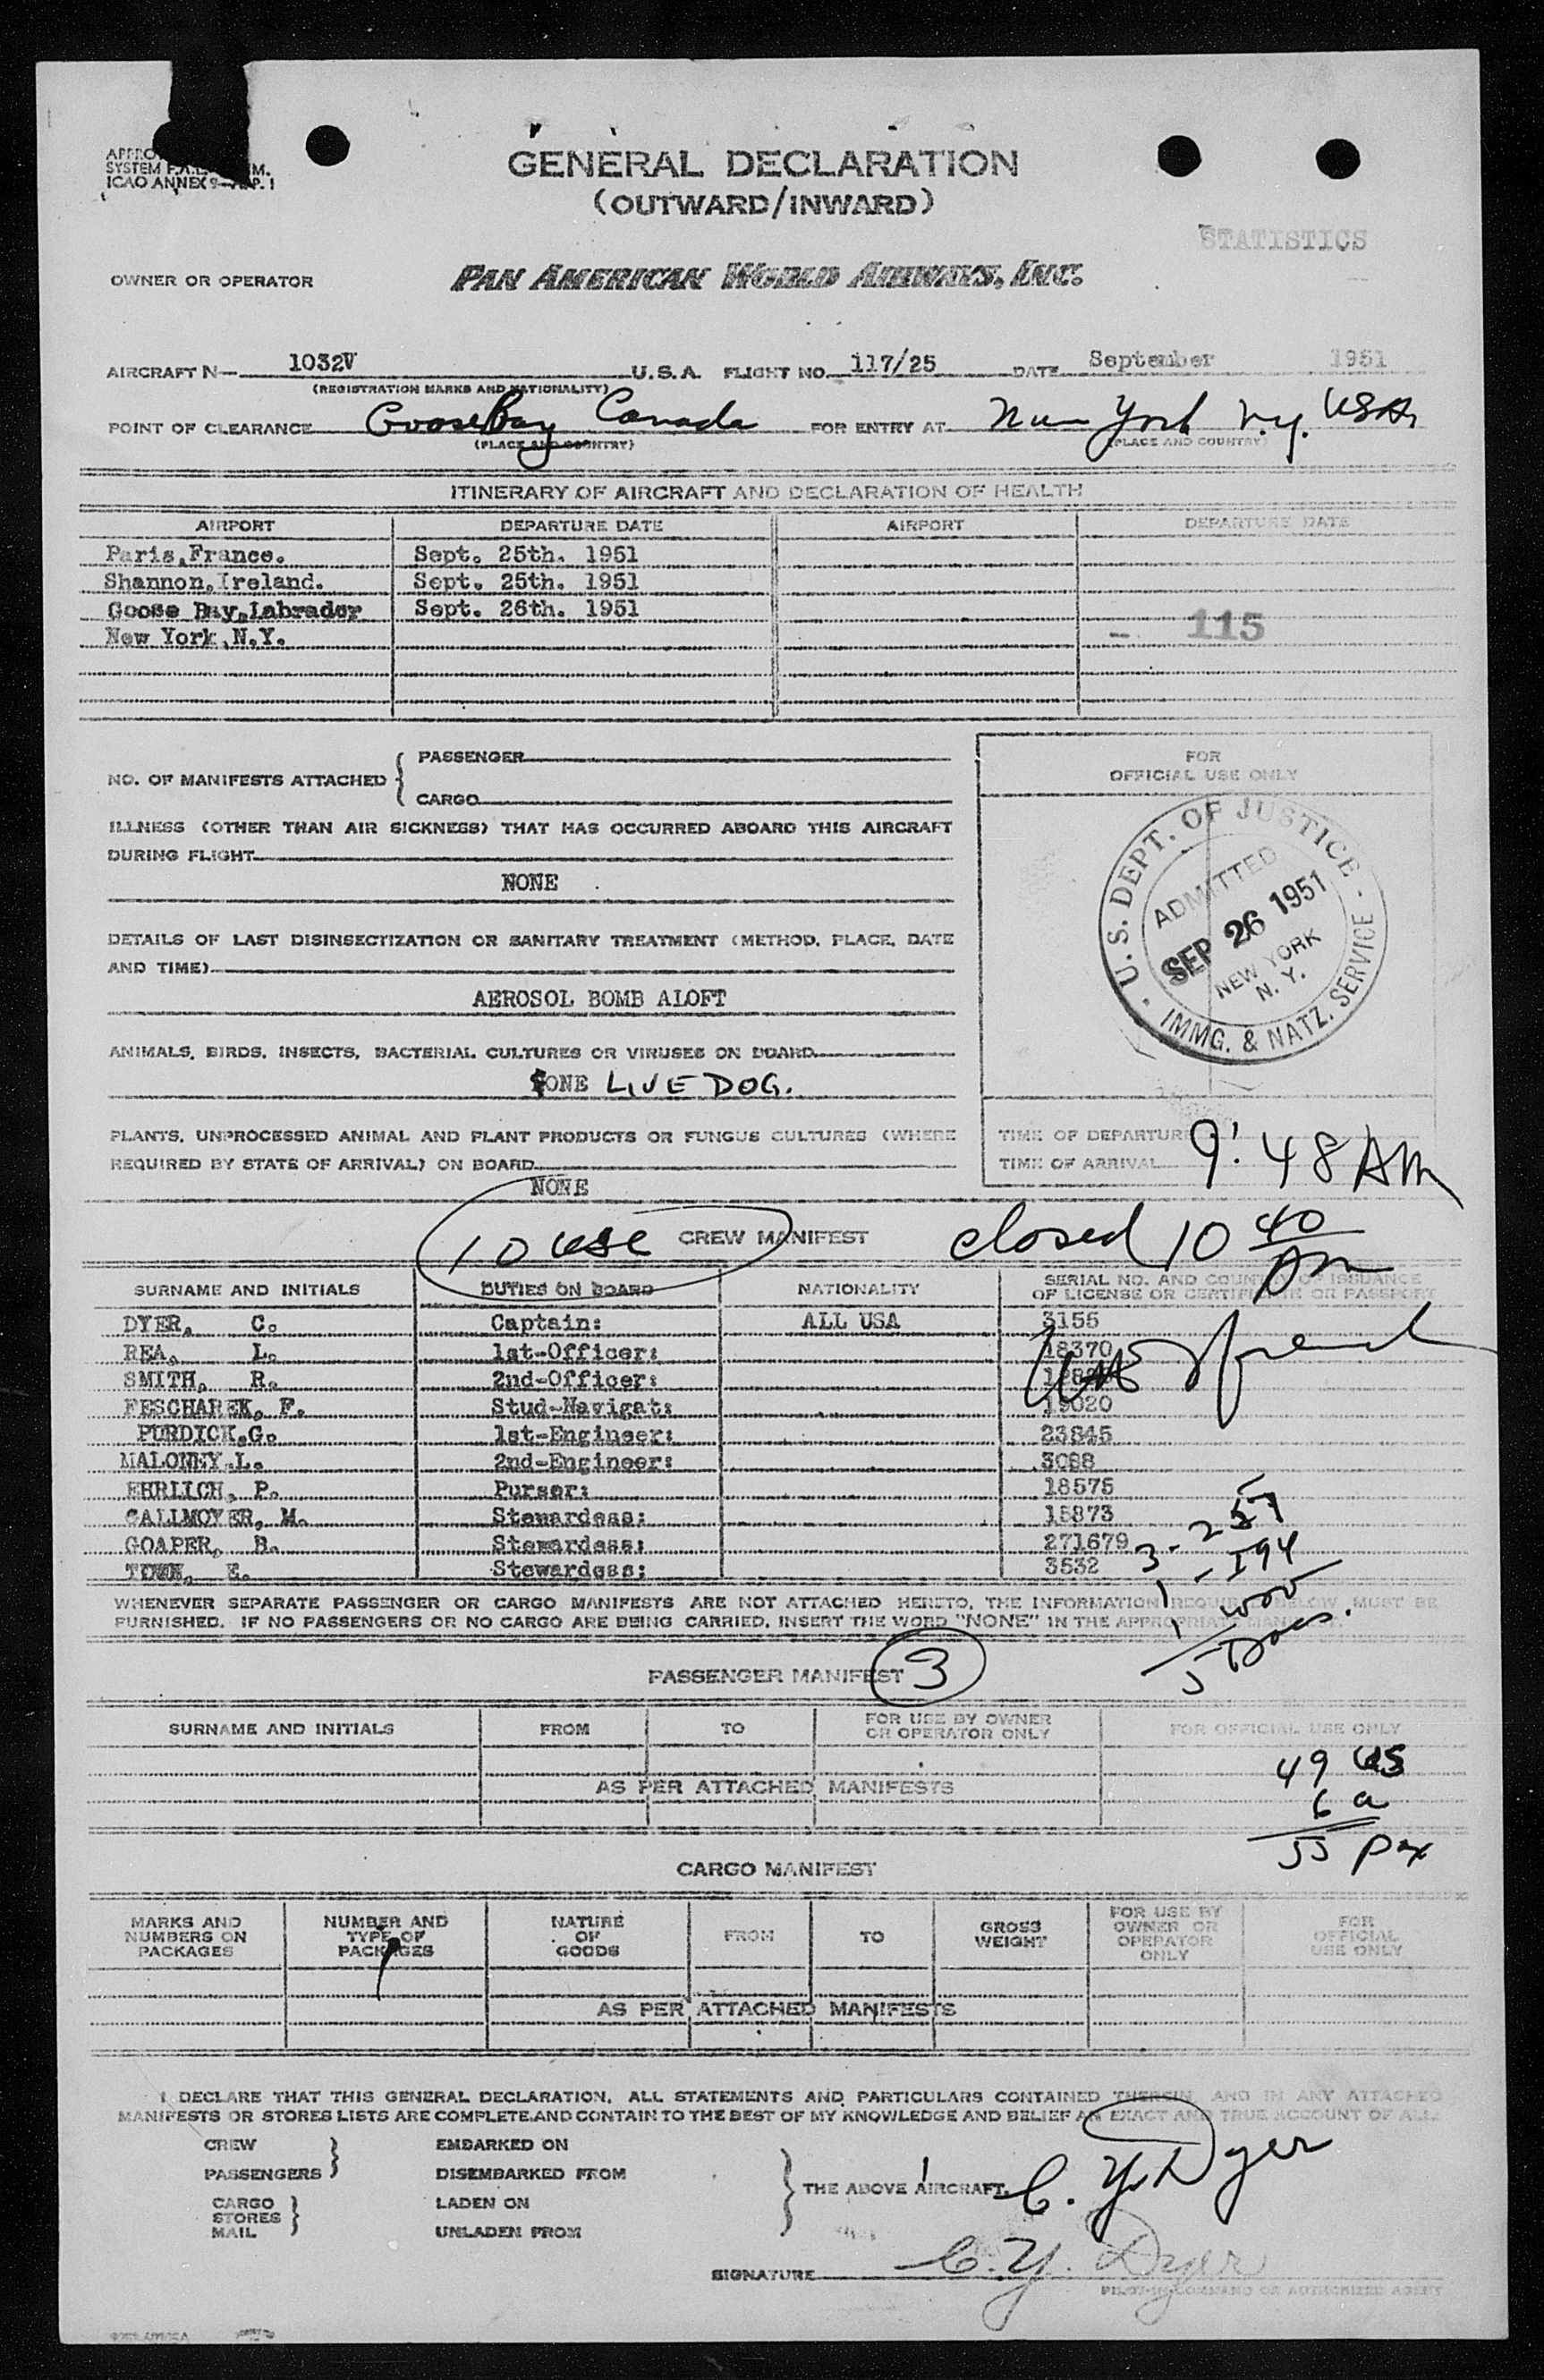 GENERAL DECLARATION
(OUTWARD/INWARD)
ICAO ANNEX 9
STATISTICS
OWNER OR OPERATOR PAN AMERICAN WORLD AIRWAYS, INC.
AIRCRAFT N— 1032V U.S.A. FLIGHT NO. 117/25 DATE September 1951
(REGISTRATION MARKS AND NATIONALITY)
POINT OF CLEARANCE Goose Bay Canada FOR ENTRY AT New York N.Y. USA
(PLACE AND COUNTRY) (PLACE AND COUNTRY)
ITINERARY OF AIRCRAFT AND DECLARATION OF HEALTH
AIRPORT DEPARTURE DATE AIRPORT DEPARTURE DATE
Paris, France. Sept. 25th. 1951
Shannon, Ireland. Sept. 25th. 1951
Goose Bay, Labrador Sept. 26th. 1951
New York, N.Y.
- 115
NO. OF MANIFESTS ATTACHED { PASSENGER
CARGO
ILLNESS (OTHER THAN AIR SICKNESS) THAT HAS OCCURRED ABOARD THIS AIRCRAFT
DURING FLIGHT
NONE
DETAILS OF LAST DISINSECTIZATION OR SANITARY TREATMENT (METHOD, PLACE, DATE
AND TIME)
AEROSOL BOMB ALOFT
ANIMALS, BIRDS, INSECTS, BACTERIAL CULTURES OR VIRUSES ON BOARD
ONE LIVE DOG.
PLANTS, UNPROCESSED ANIMAL AND PLANT PRODUCTS OR FUNGUS CULTURES (WHERE
REQUIRED BY STATE OF ARRIVAL) ON BOARD
NONE
FOR
OFFICIAL USE ONLY
U.S. DEPT. OF JUSTICE - IMMG. & NATZ. SERVICE -
ADMITTED
SEP 26 1951
NEW YORK
N. Y.
TIME OF DEPARTURE
TIME OF ARRIVAL 9:48 AM
10 USC CREW MANIFEST closed 10 40 AM
SURNAME AND INITIALS DUTIES ON BOARD NATIONALITY SERIAL NO. AND COUNTRY OF ISSUANCE
OF LICENSE OR CERTIFICATE OR PASSPORT
DYER, C. Captain: ALL USA 3155
REA, L. 1st-Officer: 18370
SMITH, R. 2nd-Officer:
PESCHAREK, F. Stud-Navigat: 19020
PURDICK, G. 1st-Engineer: 23845
MALONEY, L. 2nd-Engineer: 3088
EHRLICH, P. Purser: 18575
CALLMOYER, M. Stewardess: 15873
GOAPER, B. Stewardess: 271679
E. Stewardess: 3532
3 - 257
1 - I94
1
5 Docs.
WHENEVER SEPARATE PASSENGER OR CARGO MANIFESTS ARE NOT ATTACHED HERETO, THE INFORMATION REQUIRED BELOW MUST BE
FURNISHED. IF NO PASSENGERS OR NO CARGO ARE BEING CARRIED, INSERT THE WORD "NONE" IN THE APPROPRIATE MANIFEST.
PASSENGER MANIFEST 3
SURNAME AND INITIALS FROM TO FOR USE BY OWNER
OR OPERATOR ONLY FOR OFFICIAL USE ONLY
AS PER ATTACHED MANIFESTS
49 US
6 a
55 pax
CARGO MANIFEST
MARKS AND
NUMBERS ON
PACKAGES
NUMBER AND
TYPE OF
PACKAGES
NATURE
OF
GOODS
FROM
TO
GROSS
WEIGHT
FOR USE BY
OWNER OR
OPERATOR
ONLY
FOR
OFFICIAL
USE ONLY
AS PER ATTACHED MANIFESTS
I DECLARE THAT THIS GENERAL DECLARATION, ALL STATEMENTS AND PARTICULARS CONTAINED THEREIN, AND IN ANY ATTACHED
MANIFESTS OR STORES LISTS ARE COMPLETE AND CONTAIN TO THE BEST OF MY KNOWLEDGE AND BELIEF AN EXACT AND TRUE ACCOUNT OF ALL
CREW EMBARKED ON
PASSENGERS DISEMBARKED FROM
CARGO LADEN ON
STORES
MAIL UNLADEN FROM
THE ABOVE AIRCRAFT. C. Y. Dyer
SIGNATURE C. Y. Dyer
PILOT-IN-COMMAND OR AUTHORIZED AGENT